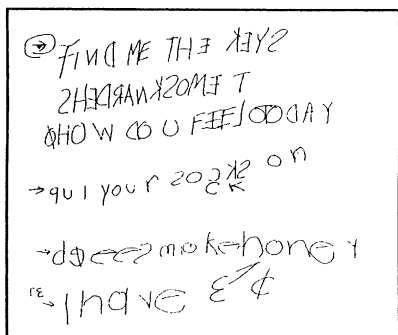 FIND ME THE KEYS
SHE DRANK SOME T
HOW DO U FEEL TODAY
qut your socks on
bees make honey
I have 3 ¢